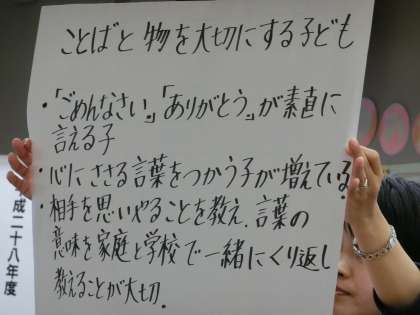 ことばと物を大切にする子ども
・「ごめんなさい。」「ありがとう。」が素直に
言える子
・心にささる言葉をつかう子が増えている。
・相手を思いやることを教え、言葉の
意味を家庭と学校で一緒にくり返し
教えることが大切.
成二十八年度